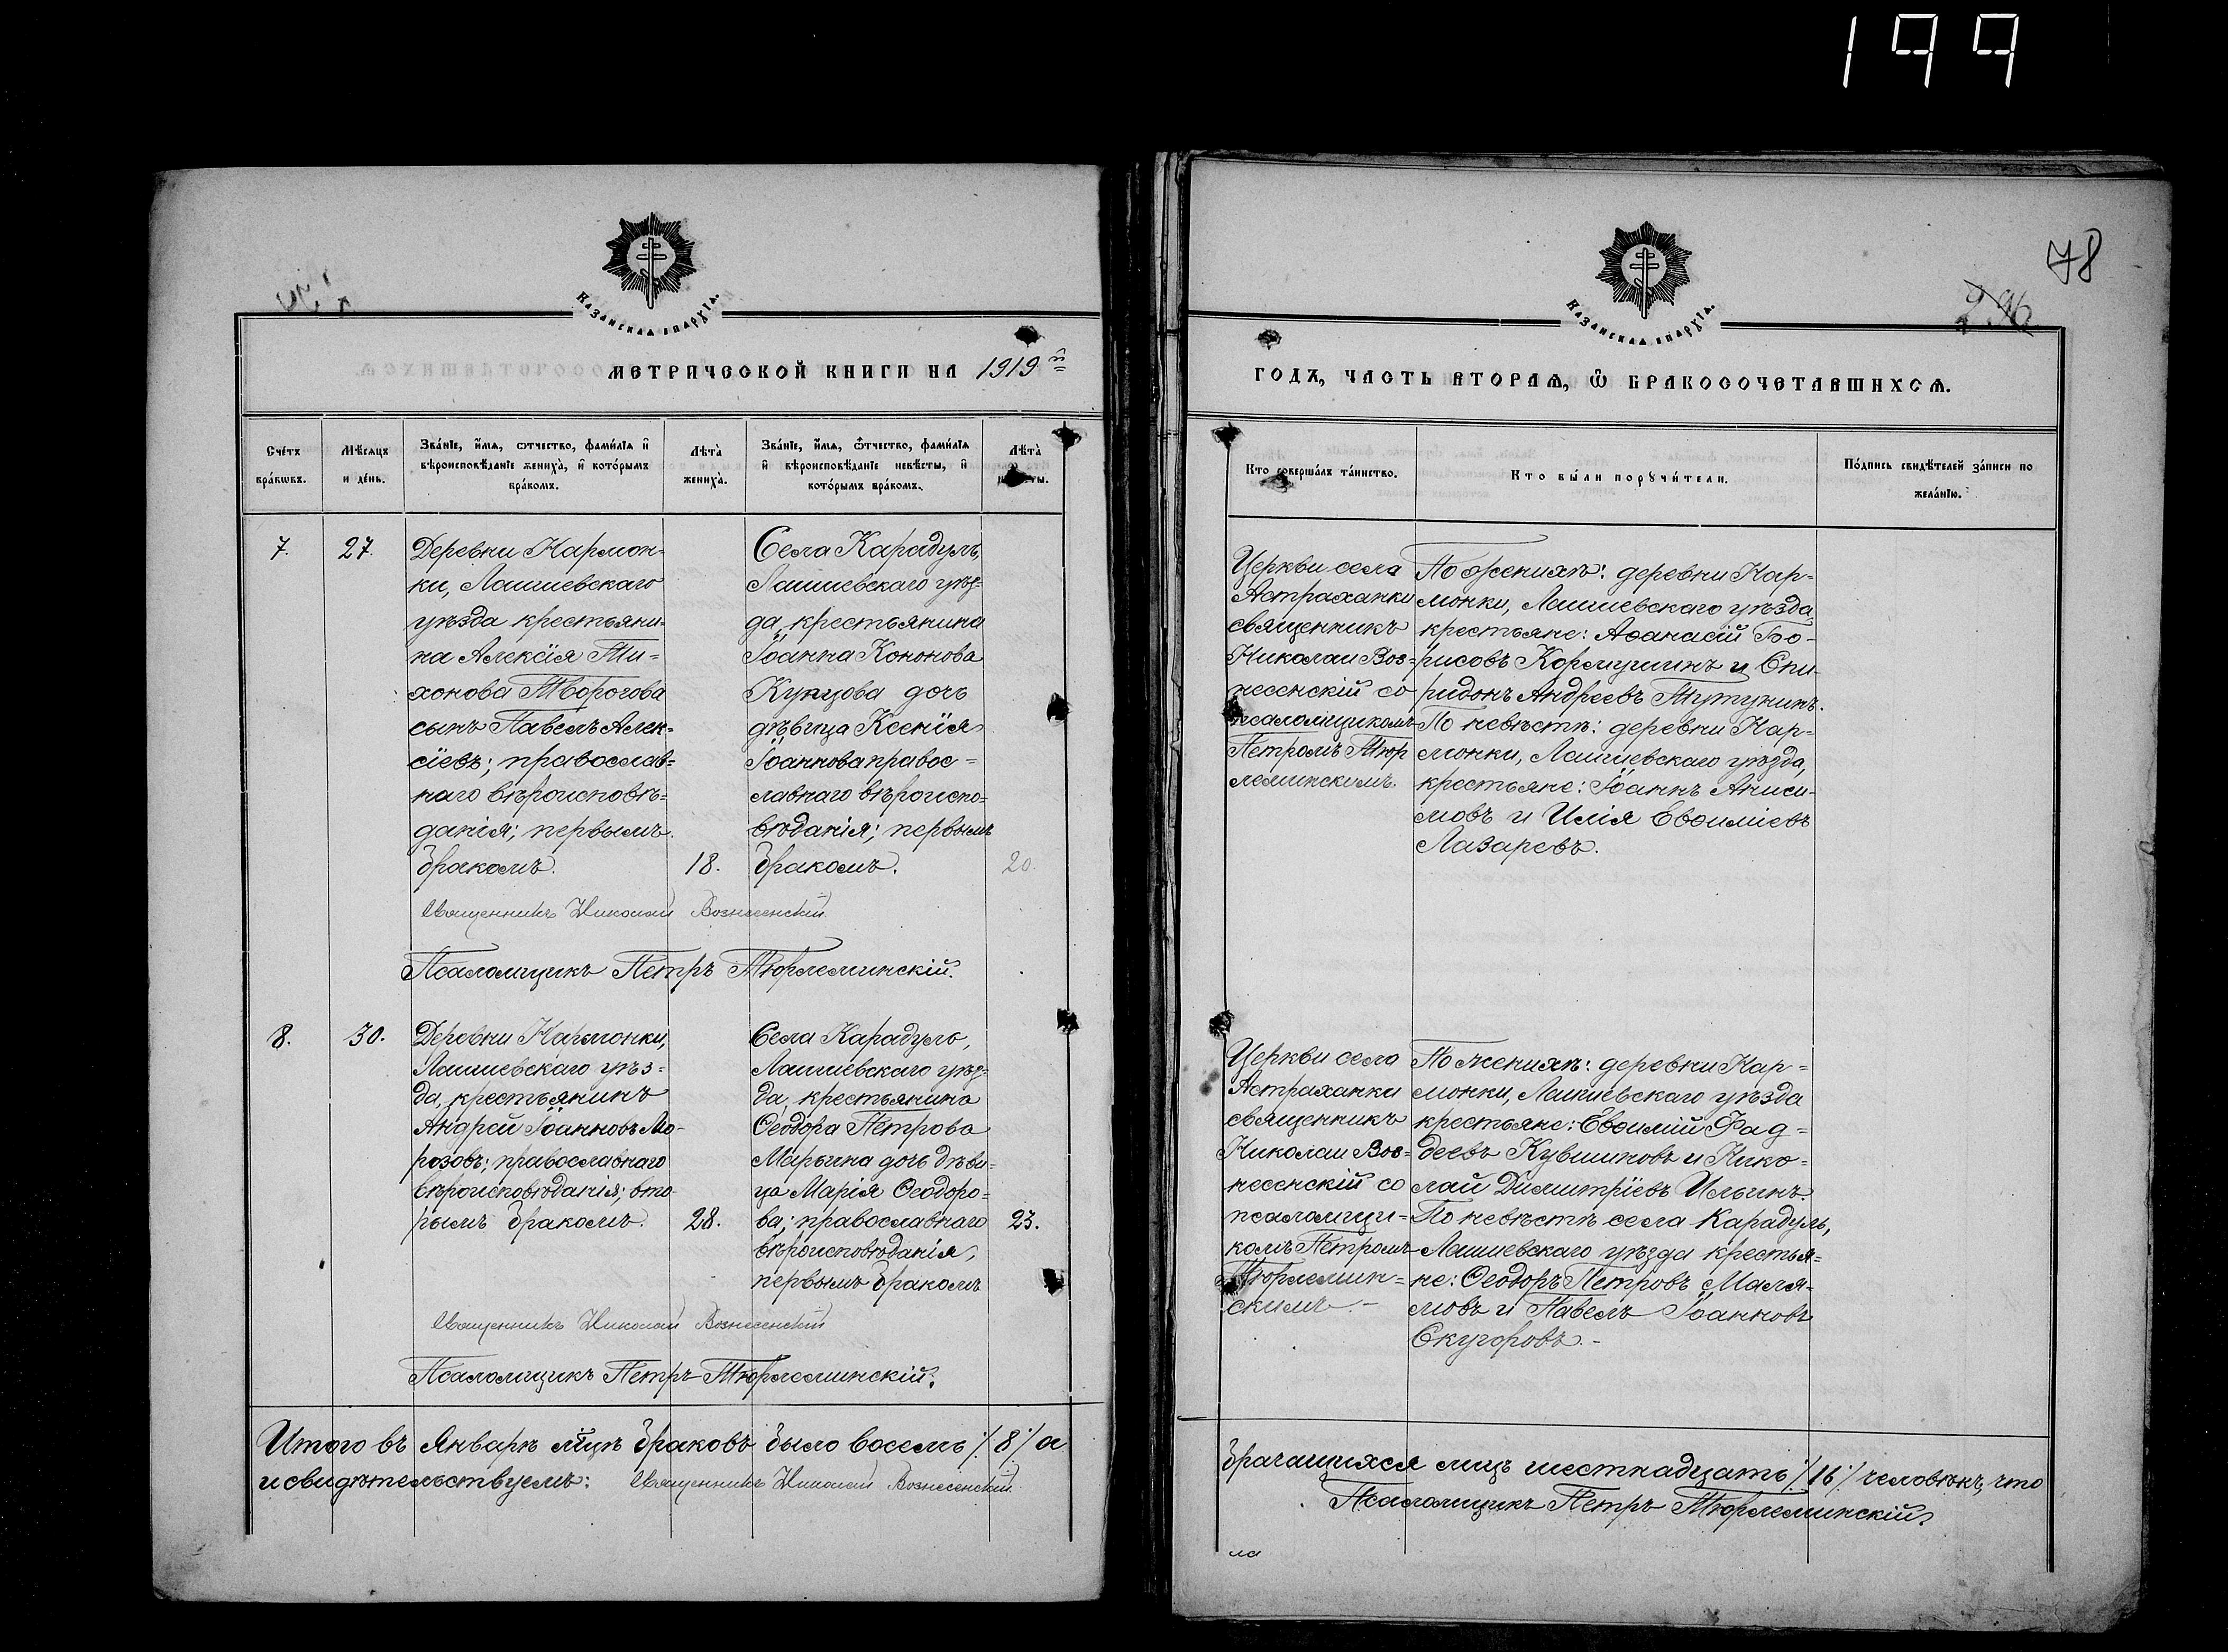 199
78
Казанская епархія.
Казанская епархія.
МЕТРИЧЕСКОЙ КНИГИ НА 1919й
ГОДЪ, ЧАСТЬ ВТОРАѦ, Ѡ БРАКОСОЧЕТАВШИХСѦ.
Сче́тъ бра́кѡвъ.
Мѣ́сѧцъ и де́нь.
Зва́нїе, и҆́мѧ, ѻтчество, фами́лїѧ и҆
вѣроисповѣ́данїе жениха̀, и҆ кото́рымъ
бра́комъ.
Лѣта̀
жениха̀.
Зва́нїе, и҆́мѧ, ѻтчество, фами́лїѧ
и҆ вѣроисповѣ́данїе невѣ́сты, и҆
кото́рымъ бра́комъ.
Лѣта̀
невѣсты.
Кто соверша́лъ та́инство.
Кто бы́ли порꙋчи́тели.
По́дпись свидѣ́телей за́писи по
жела́нїю.
7.
27.
Деревни Нармон-
ки, Лаишевскаго
уѣзда крестьяни-
на Алексія Ти-
хонова Творогова
сынъ Павелъ Алек-
сіевъ; православ-
наго вѣроисповѣ-
данія; первымъ
бракомъ.
18.
Села Карадулъ,
Лаишевскаго уѣз-
да, крестьянина
Іоанна Кононова
Купцова дочь
дѣвица Ксенія
Іоаннова правос-
лавнаго вѣроиспо-
вѣданія; первымъ
бракомъ.
20.
Церкви села
Астраханки
священникъ
Николай Воз-
несенскій со
псаломщикомъ
Петромъ Тюр
леминскимъ.
По женихѣ: деревни Нар-
монки, Лаишевскаго уѣзда,
крестьяне: Аѳанасій Бо-
рисовъ Кормушинъ и Спи-
ридонъ Андреевъ Тутунинъ.
По невѣстѣ: деревни Нар-
монки, Лаишевскаго уѣзда,
крестьяне: Іоаннъ Аниси-
мовъ и Илія Евѳиміевъ
Лазаревъ.
Священникъ Николай Вознесенскій
Псаломщикъ Петръ Тюрлеминскій.
8.
30.
Деревни Нармонки,
Лаишевскаго уѣз-
да, крестьянинъ
Андрей Іоанновъ Мо-
розовъ; православнаго
вѣроисповѣданія; вто-
рымъ бракомъ.
28.
Села Карадулъ,
Лаишевскаго уѣз-
да, крестьянина
Ѳеодора Петрова
Марьина дочь дѣви-
ца Марія Ѳеодоро-
ва; православнаго
вѣроисповѣданія,
первымъ бракомъ
23.
Церкви села
Астраханки
священникъ
Николай Воз-
несенскій со
псаломщи-
комъ Петромъ
Тюрлемин-
скимъ.-
По женихѣ: деревни Нар-
монки, Лаишевскаго уѣзда
крестьяне: Евѳимій Фад-
деевъ Кувшиновъ и Нико-
лай Димитріевъ Ильинъ.
По невѣстѣ села Карадулъ,
Лаишевскаго уѣзда крестья-
не: Ѳеодоръ Петровъ Маля-
мовъ и Павелъ Іоанновъ
Скугоровъ.-
Священникъ Николай Вознесенскій
Псаломщикъ Петръ Тюрлеминскій.
Итого въ Январѣ мцѣ браковъ было восемь /8/ а
брачащихся лицъ шестнадцать /16/ человѣкъ, что
и свидѣтельствуемъ: Священникъ Николай Вознесенскій
Псаломщикъ Петръ Тюрлеминскій.